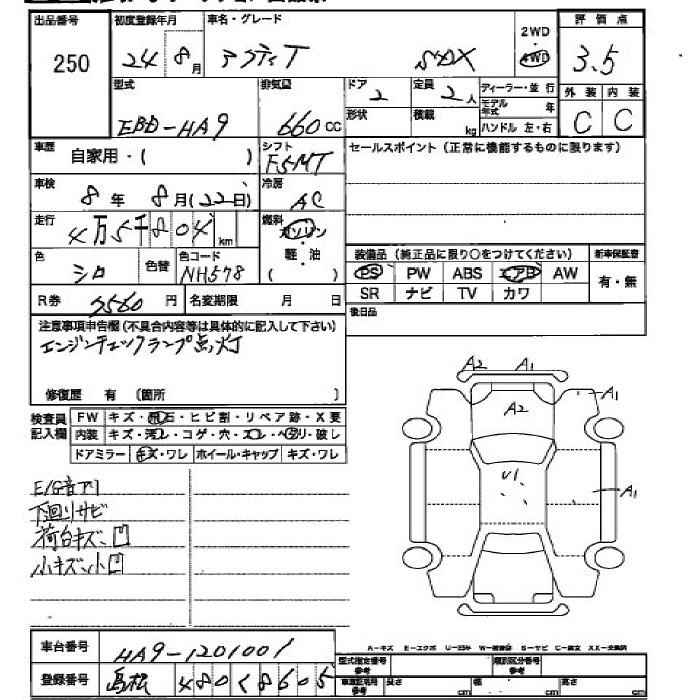 出品番号 初度登録年月 車名・グレード 2WD 評価点
250 24年8月 アクティT SDX 4WD 3.5
型式 排気量 ドア 定員 ディーラー・並行 外装 内装
EBD-HA9 660cc 2 2人 モデル年式 年 C C
形状 積載 kg ハンドル 左・右
車歴 自家用・( ) シフト F5MT セールスポイント(正常に機能するものに限ります)
車検 8年 8月(22日) 冷房 AC
走行 4万5千804km 燃料 ガソリン・軽・油( )
色 シロ 色替 色コード NH578
装備品(純正品に限り○をつけてください) 新車保証書
PS PW ABS エアB AW 有・無
SR ナビ TV カワ
R券 円 名変期限 月 日 後日品
注意事項申告欄(不具合内容等は具体的に記入して下さい)
エンジンチェックランプ点灯
修復歴 有 〔箇所 〕
検査員記入欄 FW キズ・飛石・ヒビ割・リペア跡・X要
内装 キズ・汚レ・コゲ・穴・スレ・ヘタリ・破レ
ドアミラー キズ・ワレ ホイール・キャップ キズ・ワレ
A2 A1
A1
A2
U1
A1
E/G音アリ
下廻りサビ
荷台キズ、凹
小キズ、小凹
車台番号 HA9-1201001
登録番号 高松 480く8605
型式指定番号 参考 類別区分番号 参考
長さ cm 幅 cm 高さ cm